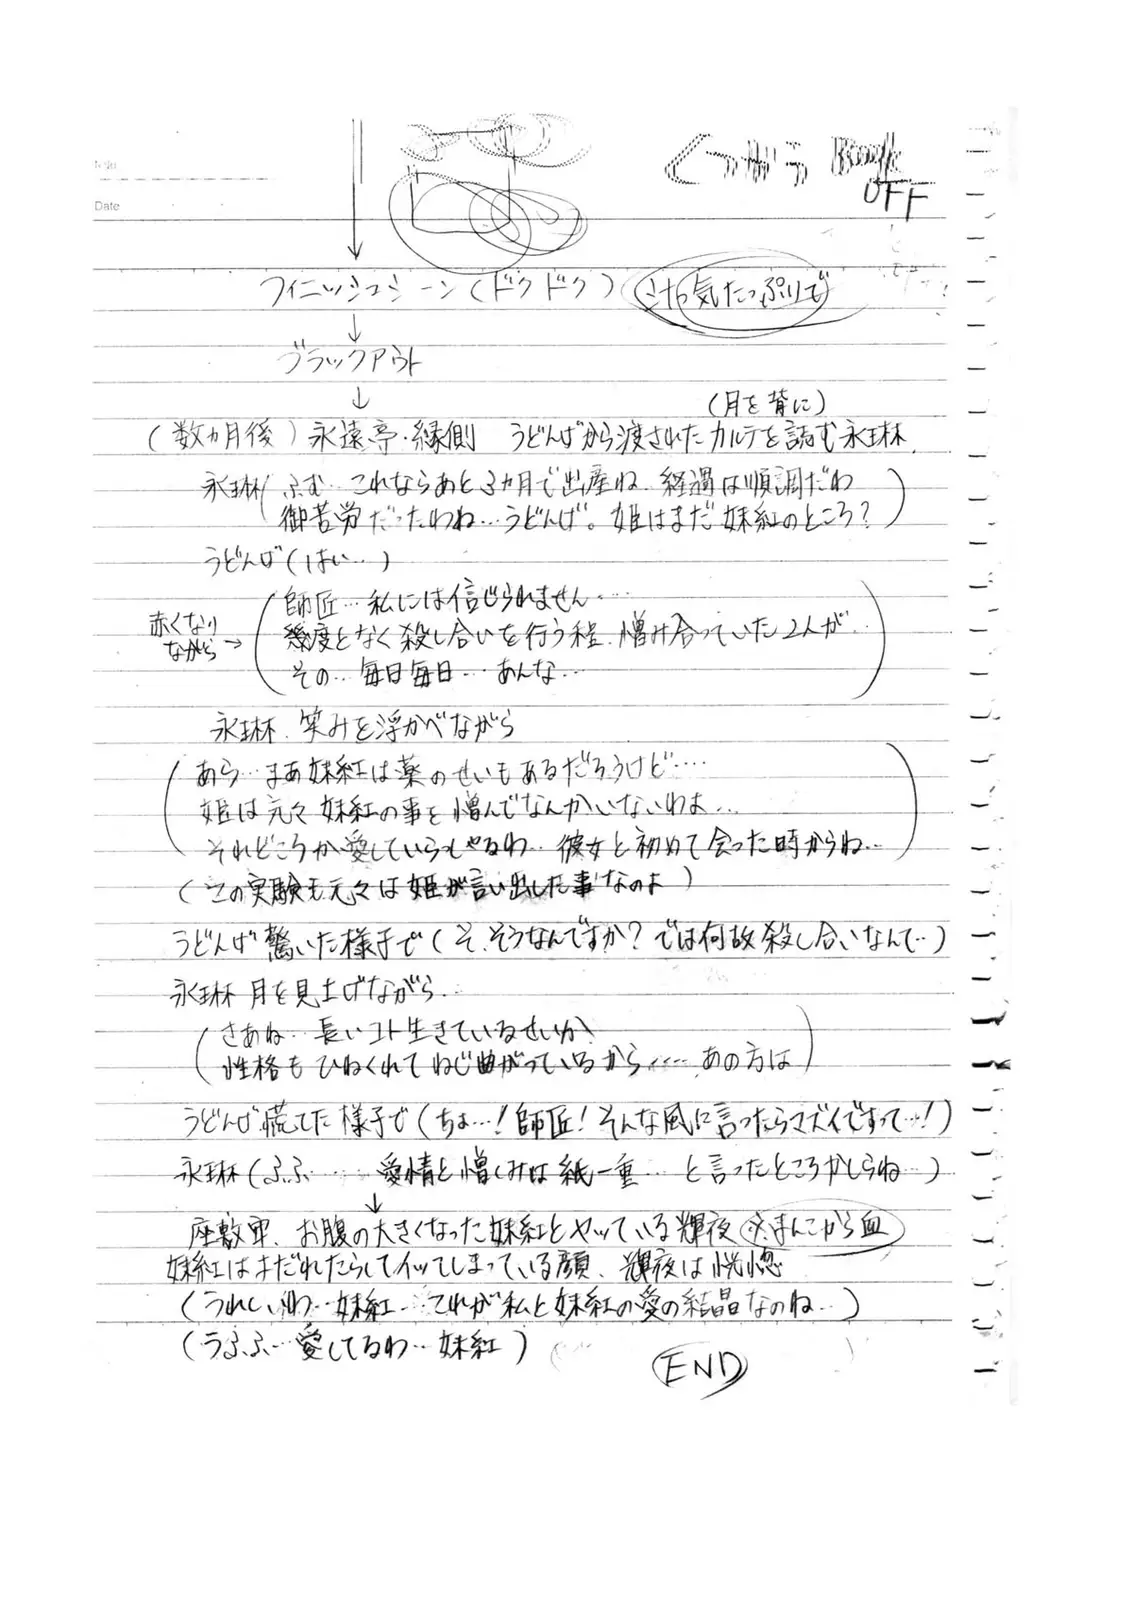 Date
くっつがう
OFF
フィニッシュシーン(ドクドク) 汁っ気たっぷりで
↓
ブラックアウト
↓
(月を背に)
(数ヵ月後)永遠亭・縁側 うどんげから渡されたカルテを読む永琳
永琳(ふむ…これならあと3ヵ月で出産ね、経過は順調だわ
御苦労だったわね…うどんげ。姫はまだ妹紅のところ?)
うどんげ(はい…)
赤くなり
ながら→
(師匠…私には信じられません…
幾度となく殺し合いを行う程、憎み合っていた2人が
その…毎日毎日…あんな…)
永琳、笑みを浮かべながら
(あら…まあ妹紅は薬のせいもあるだろうけど…
姫は元々妹紅の事を憎んでなんかいないわよ…
それどころか愛していらっしゃるわ…彼女と初めて会った時からね…)
(この実験も元々は姫が言い出した事なのよ)
うどんげ驚いた様子で(そ、そうなんですか?では何故殺し合いなんて…)
永琳 月を見上げながら…
(さあね…長いコト生きているせいか
性格もひねくれてねじ曲がっているから……あの方は)
うどんげ慌てた様子で(ちょ…!師匠!そんな風に言ったらマズイですって…!)
永琳(ふふ……愛情と憎しみは紙一重…と言ったところかしらね…)
↓
座敷牢、お腹の大きくなった妹紅とヤッている輝夜 ※まんこから血
妹紅はまだれたらしてイッてしまっている顔、輝夜は恍惚
(うれしいわ…妹紅…これが私と妹紅の愛の結晶なのね…)
(うふふ…愛してるわ…妹紅)
END